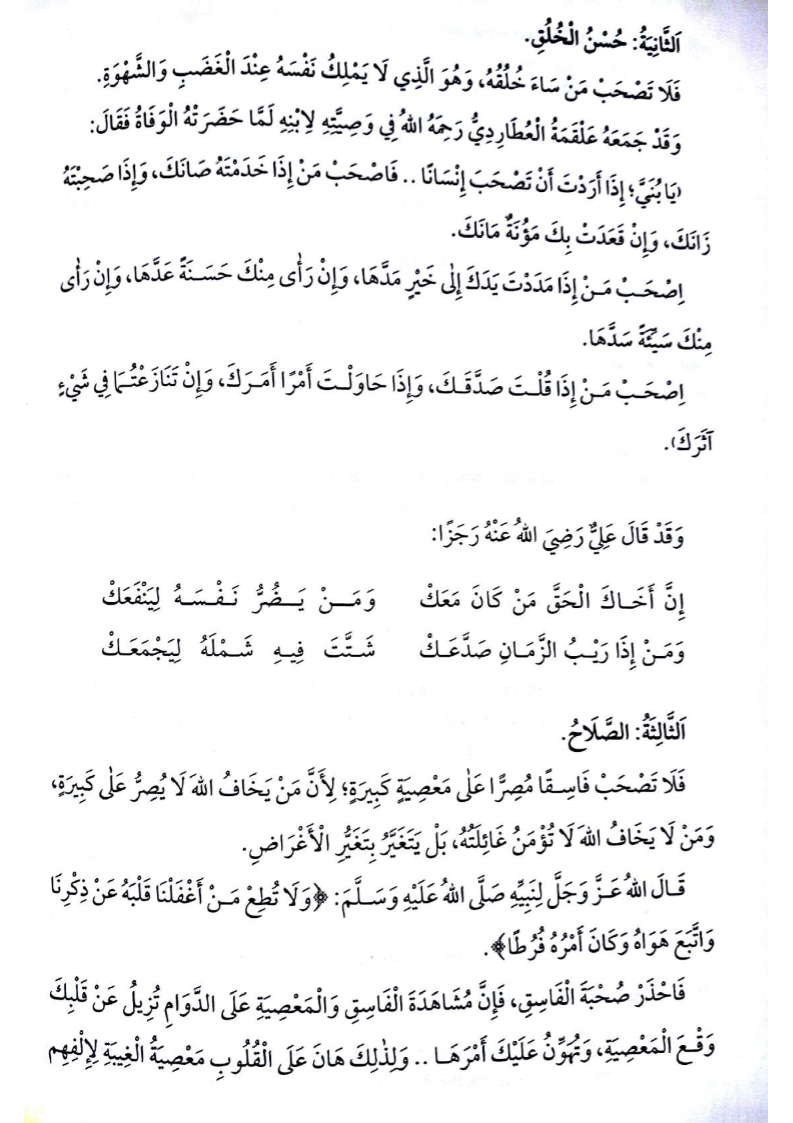 اَلثَّانِيَةُ: حُسْنُ الْخُلُقِ.
فَلَا تَصْحَبْ مَنْ سَاءَ خُلُقُهُ، وَهُوَ الَّذِي لَا يَمْلِكُ نَفْسَهُ عِنْدَ الْغَضَبِ وَالشَّهْوَةِ.
وَقَدْ جَمَعَهُ عَلْقَمَةُ الْعُطَارِدِيُّ رَحِمَهُ اللهُ فِي وَصِيَّتِهِ لِابْنِهِ لَمَّا حَضَرَتْهُ الْوَفَاةُ فَقَالَ:
(يَا بُنَيَّ؛ إِذَا أَرَدْتَ أَنْ تَصْحَبَ إِنْسَانًا .. فَاصْحَبْ مَنْ إِذَا خَدَمْتَهُ صَانَكَ، وَإِذَا صَحِبْتَهُ
زَانَكَ، وَإِنْ قَعَدَتْ بِكَ مَؤُنَةٌ مَانَكَ.
اِصْحَبْ مَنْ إِذَا مَدَدْتَ يَدَكَ إِلَى خَيْرٍ مَدَّهَا، وَإِنْ رَأَى مِنْكَ حَسَنَةً عَدَّهَا، وَإِنْ رَأَى
مِنْكَ سَيِّئَةً سَدَّهَا.
اِصْحَبْ مَنْ إِذَا قُلْتَ صَدَّقَكَ، وَإِذَا حَاوَلْتَ أَمْرًا أَمَرَكَ، وَإِنْ تَنَازَعْتُمَا فِي شَيْءٍ
آثَرَكَ).
وَقَدْ قَالَ عَلِيٌّ رَضِيَ اللهُ عَنْهُ رَجَزًا:
إِنَّ أَخَاكَ الْحَقَّ مَنْ كَانَ مَعَكْ وَمَنْ يَضُرُّ نَفْسَهُ لِيَنْفَعَكْ
وَمَنْ إِذَا رَيْبُ الزَّمَانِ صَدَّعَكْ شَتَّتَ فِيهِ شَمْلَهُ لِيَجْمَعَكْ
اَلثَّالِثَةُ: الصَّلَاحُ.
فَلَا تَصْحَبْ فَاسِقًا مُصِرًّا عَلَى مَعْصِيَةٍ كَبِيرَةٍ؛ لِأَنَّ مَنْ يَخَافُ اللهَ لَا يُصِرُّ عَلَى كَبِيرَةٍ،
وَمَنْ لَا يَخَافُ اللهَ لَا تُؤْمَنُ غَائِلَتُهُ، بَلْ يَتَغَيَّرُ بِتَغَيُّرِ الْأَغْرَاضِ.
قَالَ اللهُ عَزَّ وَجَلَّ لِنَبِيِّهِ صَلَّى اللهُ عَلَيْهِ وَسَلَّمَ: ﴿وَلَا تُطِعْ مَنْ أَغْفَلْنَا قَلْبَهُ عَنْ ذِكْرِنَا
وَاتَّبَعَ هَوَاهُ وَكَانَ أَمْرُهُ فُرُطًا﴾.
فَاحْذَرْ صُحْبَةَ الْفَاسِقِ، فَإِنَّ مُشَاهَدَةَ الْفَاسِقِ وَالْمَعْصِيَةِ عَلَى الدَّوَامِ تُزِيلُ عَنْ قَلْبِكَ
وَقْعَ الْمَعْصِيَةِ، وَتُهَوِّنُ عَلَيْكَ أَمْرَهَا .. وَلِذَلِكَ هَانَ عَلَى الْقُلُوبِ مَعْصِيَةُ الْغِيبَةِ لِإِلْفِهِم